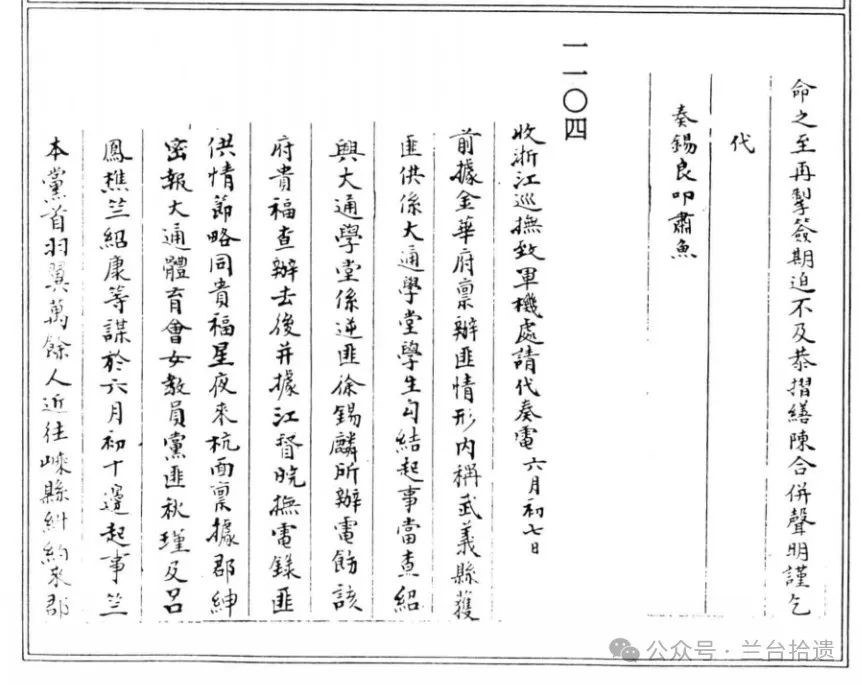 命之至再掣簽期迫不及恭摺繕陳合併聲明謹乞
代
奏錫良叩肅魚
一一〇四
收浙江巡撫致軍機處請代奏電 六月初七日
前據金華府稟辦匪情形内稱武義縣獲
匪供係大通學堂學生勾結起事當查紹
興大通學堂係逆匪徐錫麟所辦電飭該
府貴福查辦去後并據江督皖撫電錄匪
供情節略同貴福星夜來杭面稟據郡紳
密報大通體育會女教員黨匪秋瑾及呂
鳳樵竺紹康等謀於六月初十邊起事竺
本黨首羽翼萬餘人近往嵊縣糾約來郡
公众号·兰台拾遗